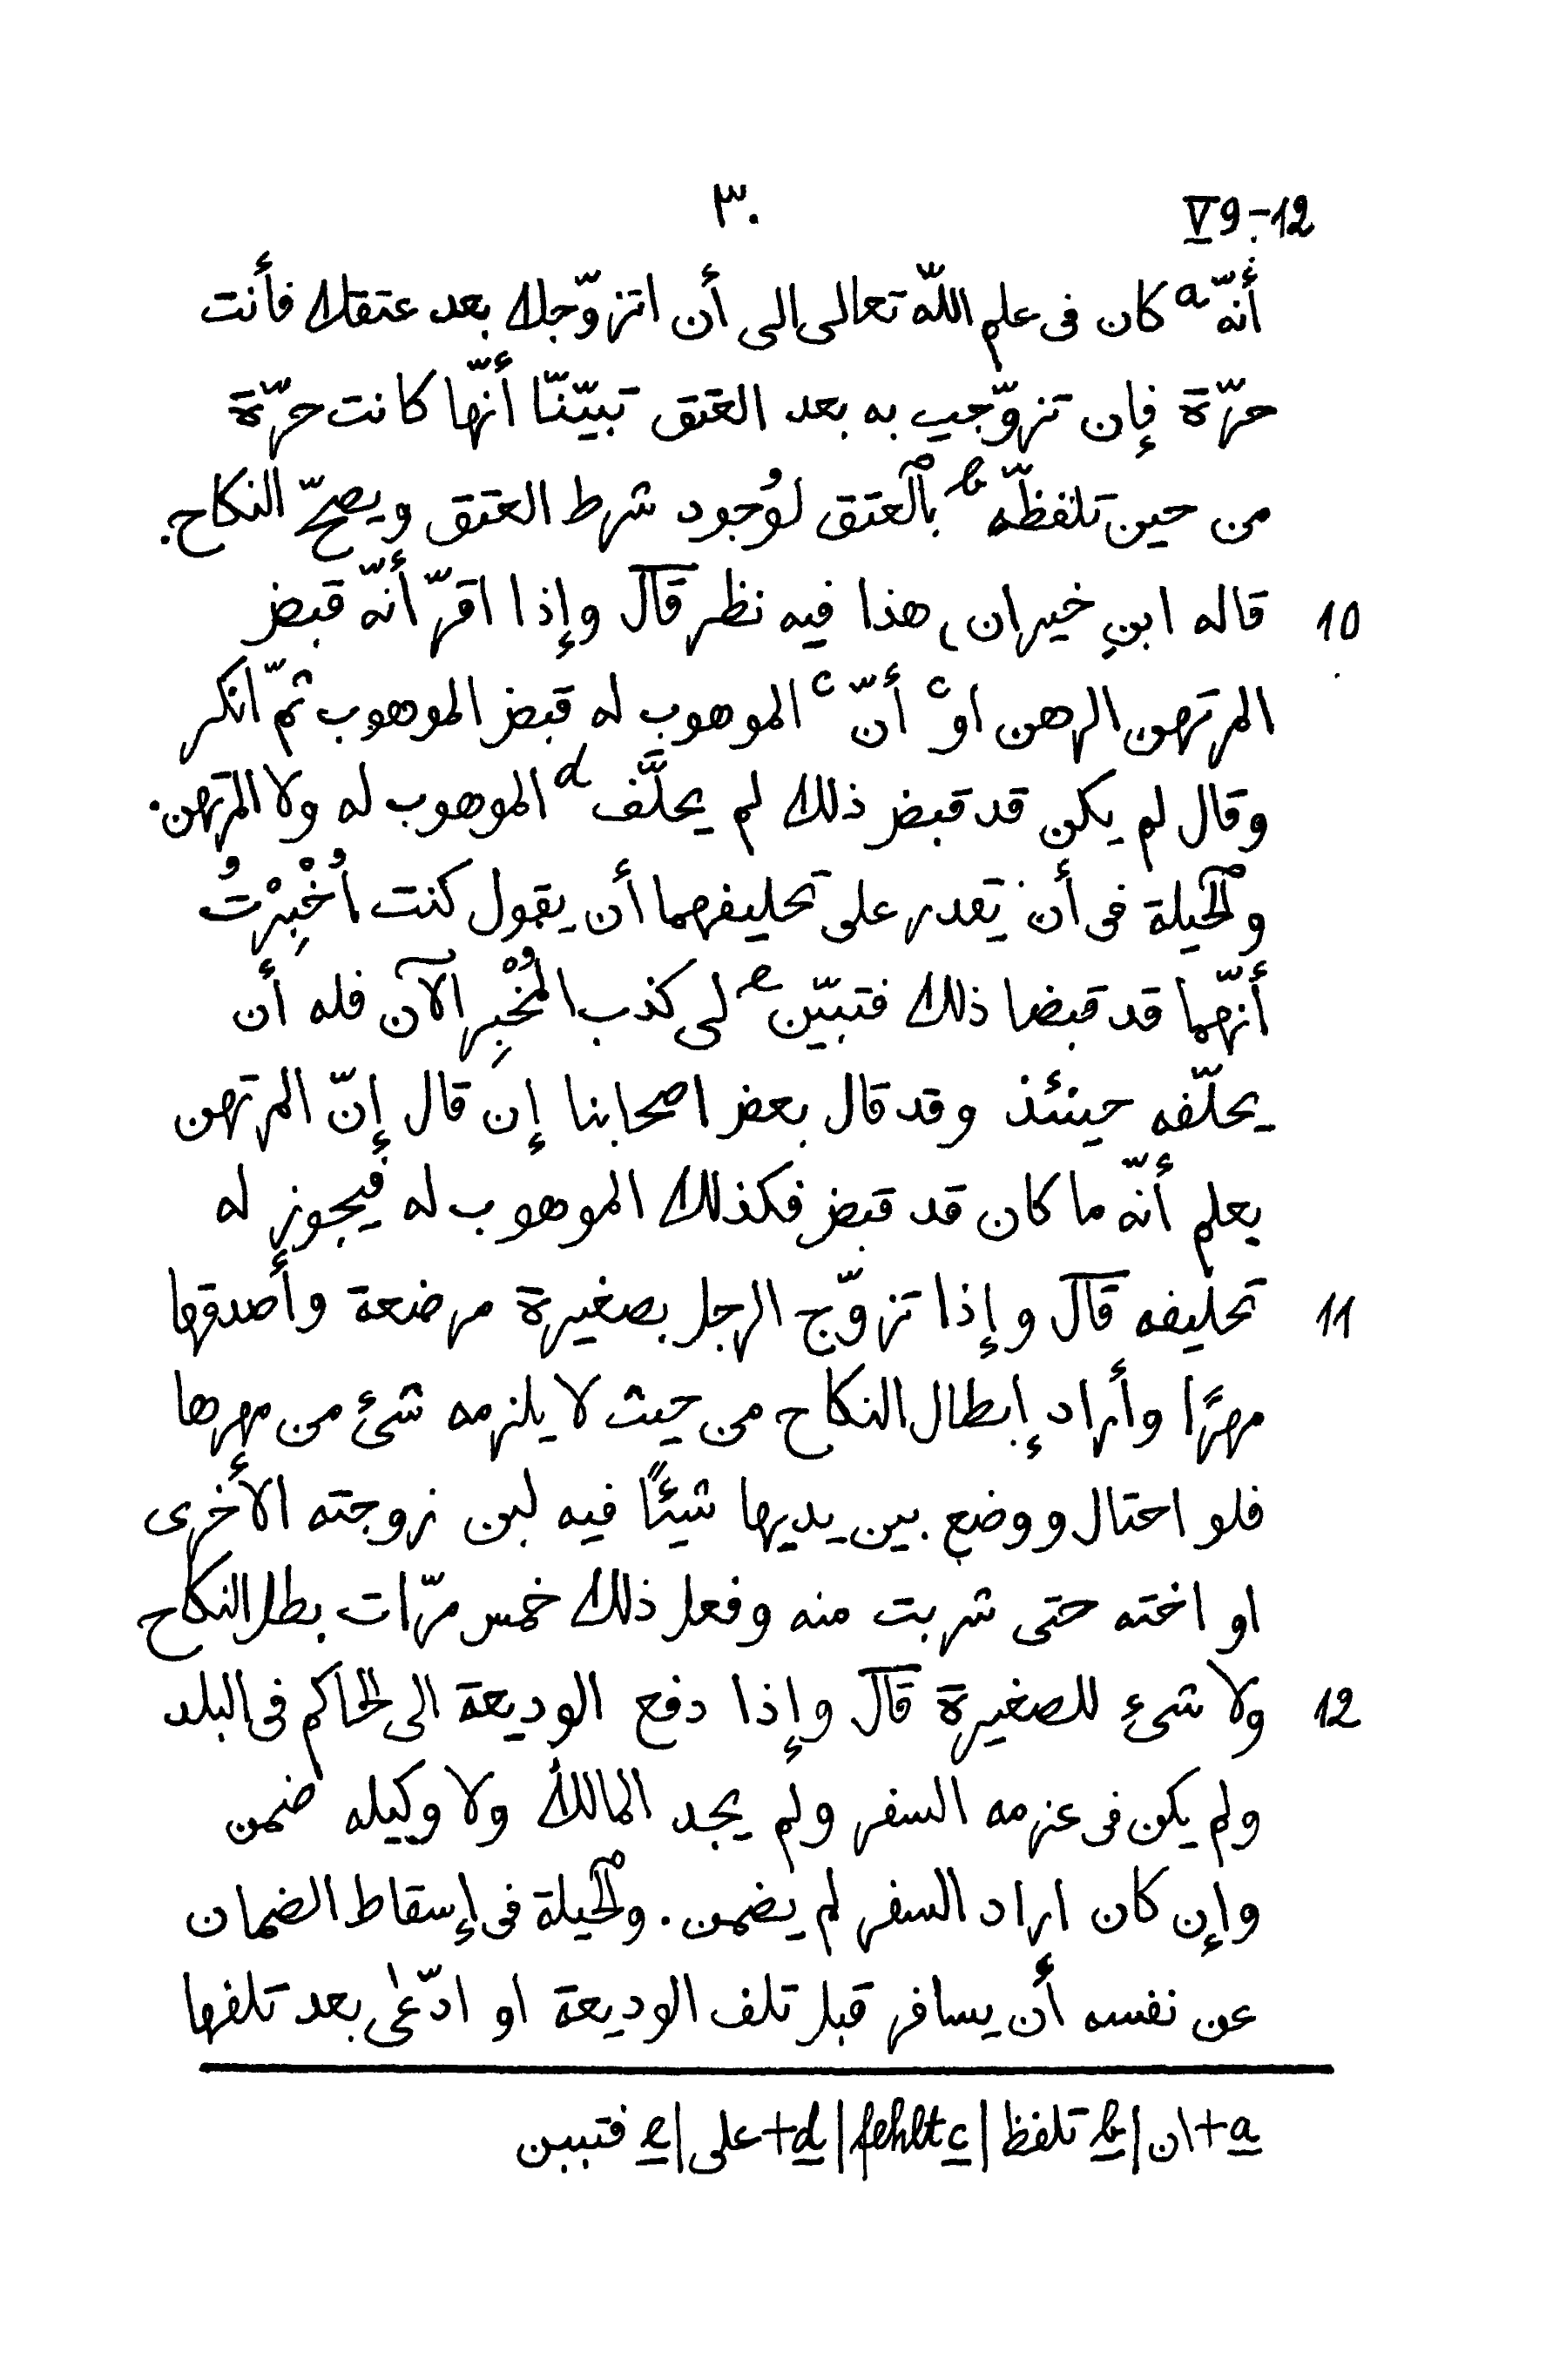 ٣٠ V 9-12
أنّه a كان فى علم اللّه تعالى الى أن اتزوّجك بعد عتقك فأنت
حرّة فإن تزوّجب به بعد العتق تبيّنّا أنّها كانت حرّة
من حين تلفظّه b بٱلعتق لوُجود شرط العتق ويصحّ النكاح.
10 قاله ابن خيران، هذا فيه نظر قال وإذا اقرّ أنّه قبض
المرتهن الرهن او c أنّ c الموهوب له قبض الموهوب ثمّ انكر
وقال لم يكن قد قبض ذلك لم يحلَّف d الموهوب له ولا المرتهن.
وٱلحيلة فى أن يقدر على تحليفهما أن يقول كنت أُخْبِرْتُ
أنّهما قد قبضا ذلك فتبيّن e لى كذب المُخْبِر الآن فله أن
يحلّفه حينئذ وقد قال بعض اصحابنا إن قال إنّ المرتهن
يعلم أنّه ما كان قد قبض فكذلك الموهوب له فيجوز له
11 تحليفه قال وإذا تزوّج الرجل بصغيرة مرضعة وأصدقها
مهرًا وأراد إبطال النكاح من حيث لا يلزمه شئ من مهرها
فلو احتال ووضع بين يديها شيئًا فيه لبن زوجته الأخرى
او اخته حتى شربت منه وفعل ذلك خمس مرّات بطل النكاح
12 ولا شىء للصغيرة قال وإذا دفع الوديعة الى الحاكم فى البلد
ولم يكن فى عزمه السفر ولم يجد المالك ولا وكيله ضمن
وإن كان اراد السفر لم يضمن. وٱلحيلة فى إسقاط الضمان
عن نفسه أن يسافر قبل تلف الوديعة او ادّعى بعد تلفها
a + ان | b تلفظ | c fehlt | d + على | e فتببن